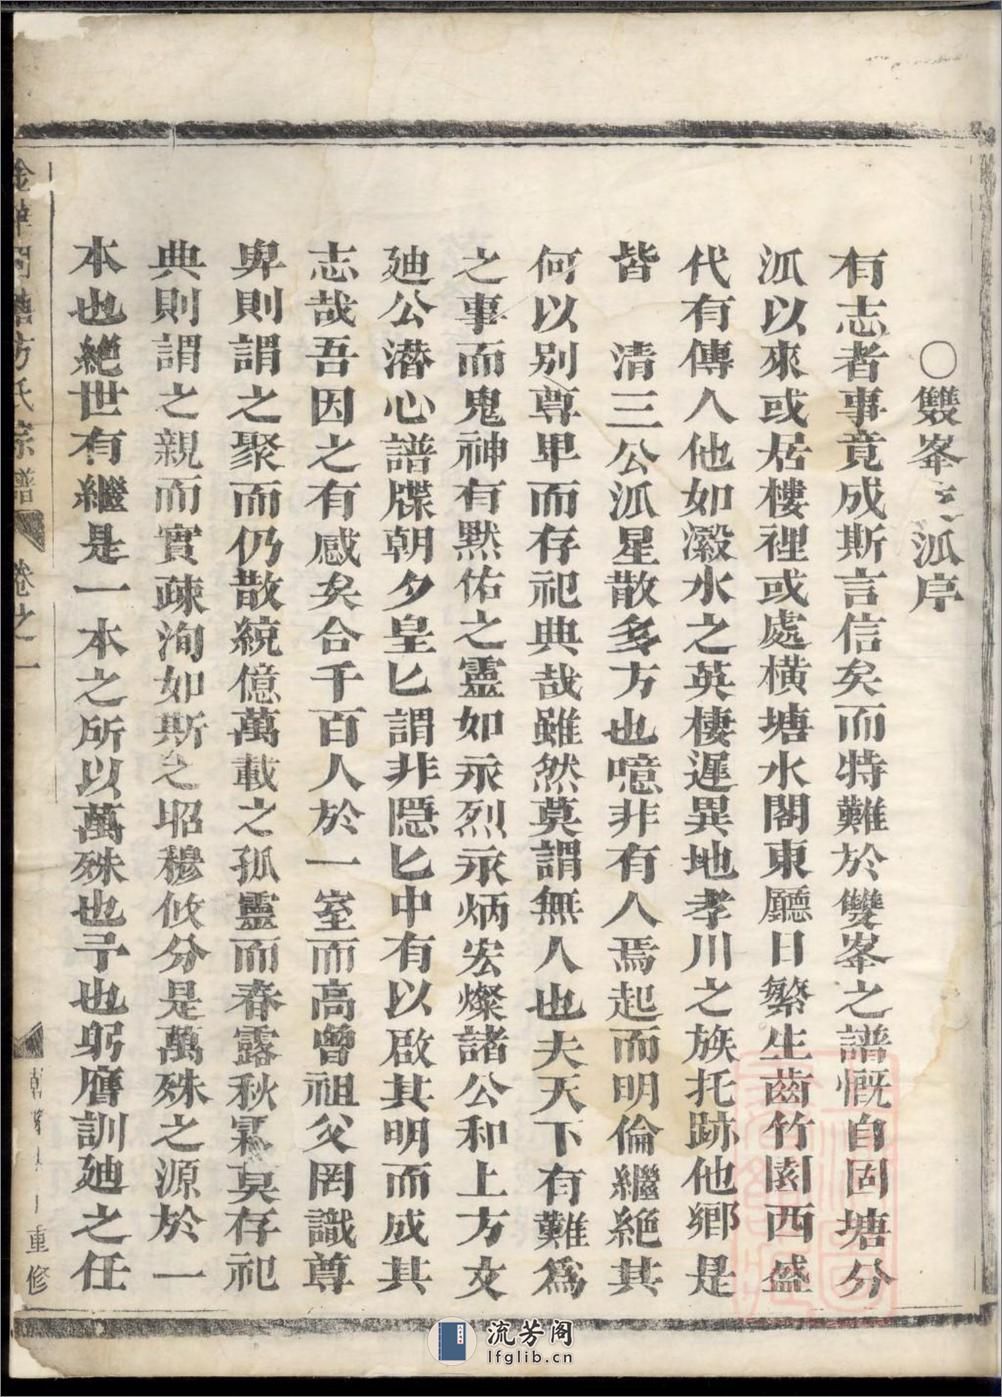 ○雙峯之派序
有志者事竟成斯言信矣而特難於雙峯之譜慨自固塘分
派以來或居樓裡或處橫塘水閣東廳日繁生齒竹園西盛
代有傳人他如瀫水之英棲遲異地孝川之族托跡他鄉是
皆 清三公派星散多方也噫非有人焉起而明倫繼絕其
何以別尊卑而存祀典哉雖然莫謂無人也夫天下有難爲
之事而鬼神有黙佑之靈如永烈永炳宏燦諸公和上方文
廸公潜心譜牒朝夕皇匕謂非隠匕中有以啟其明而成其
志哉吾因之有感矣合千百人於一室而高曾祖父罔識尊
卑則謂之聚而仍散統億萬載之孤靈而春露秋霜莫存祀
典則謂之親而實疎洵如斯之昭穆攸分是萬殊之源於一
本也絕世有繼是一本之所以萬殊也予也躬膺訓廸之任
方氏宗譜 卷之一 重修
流芳阁
lfglib.cn